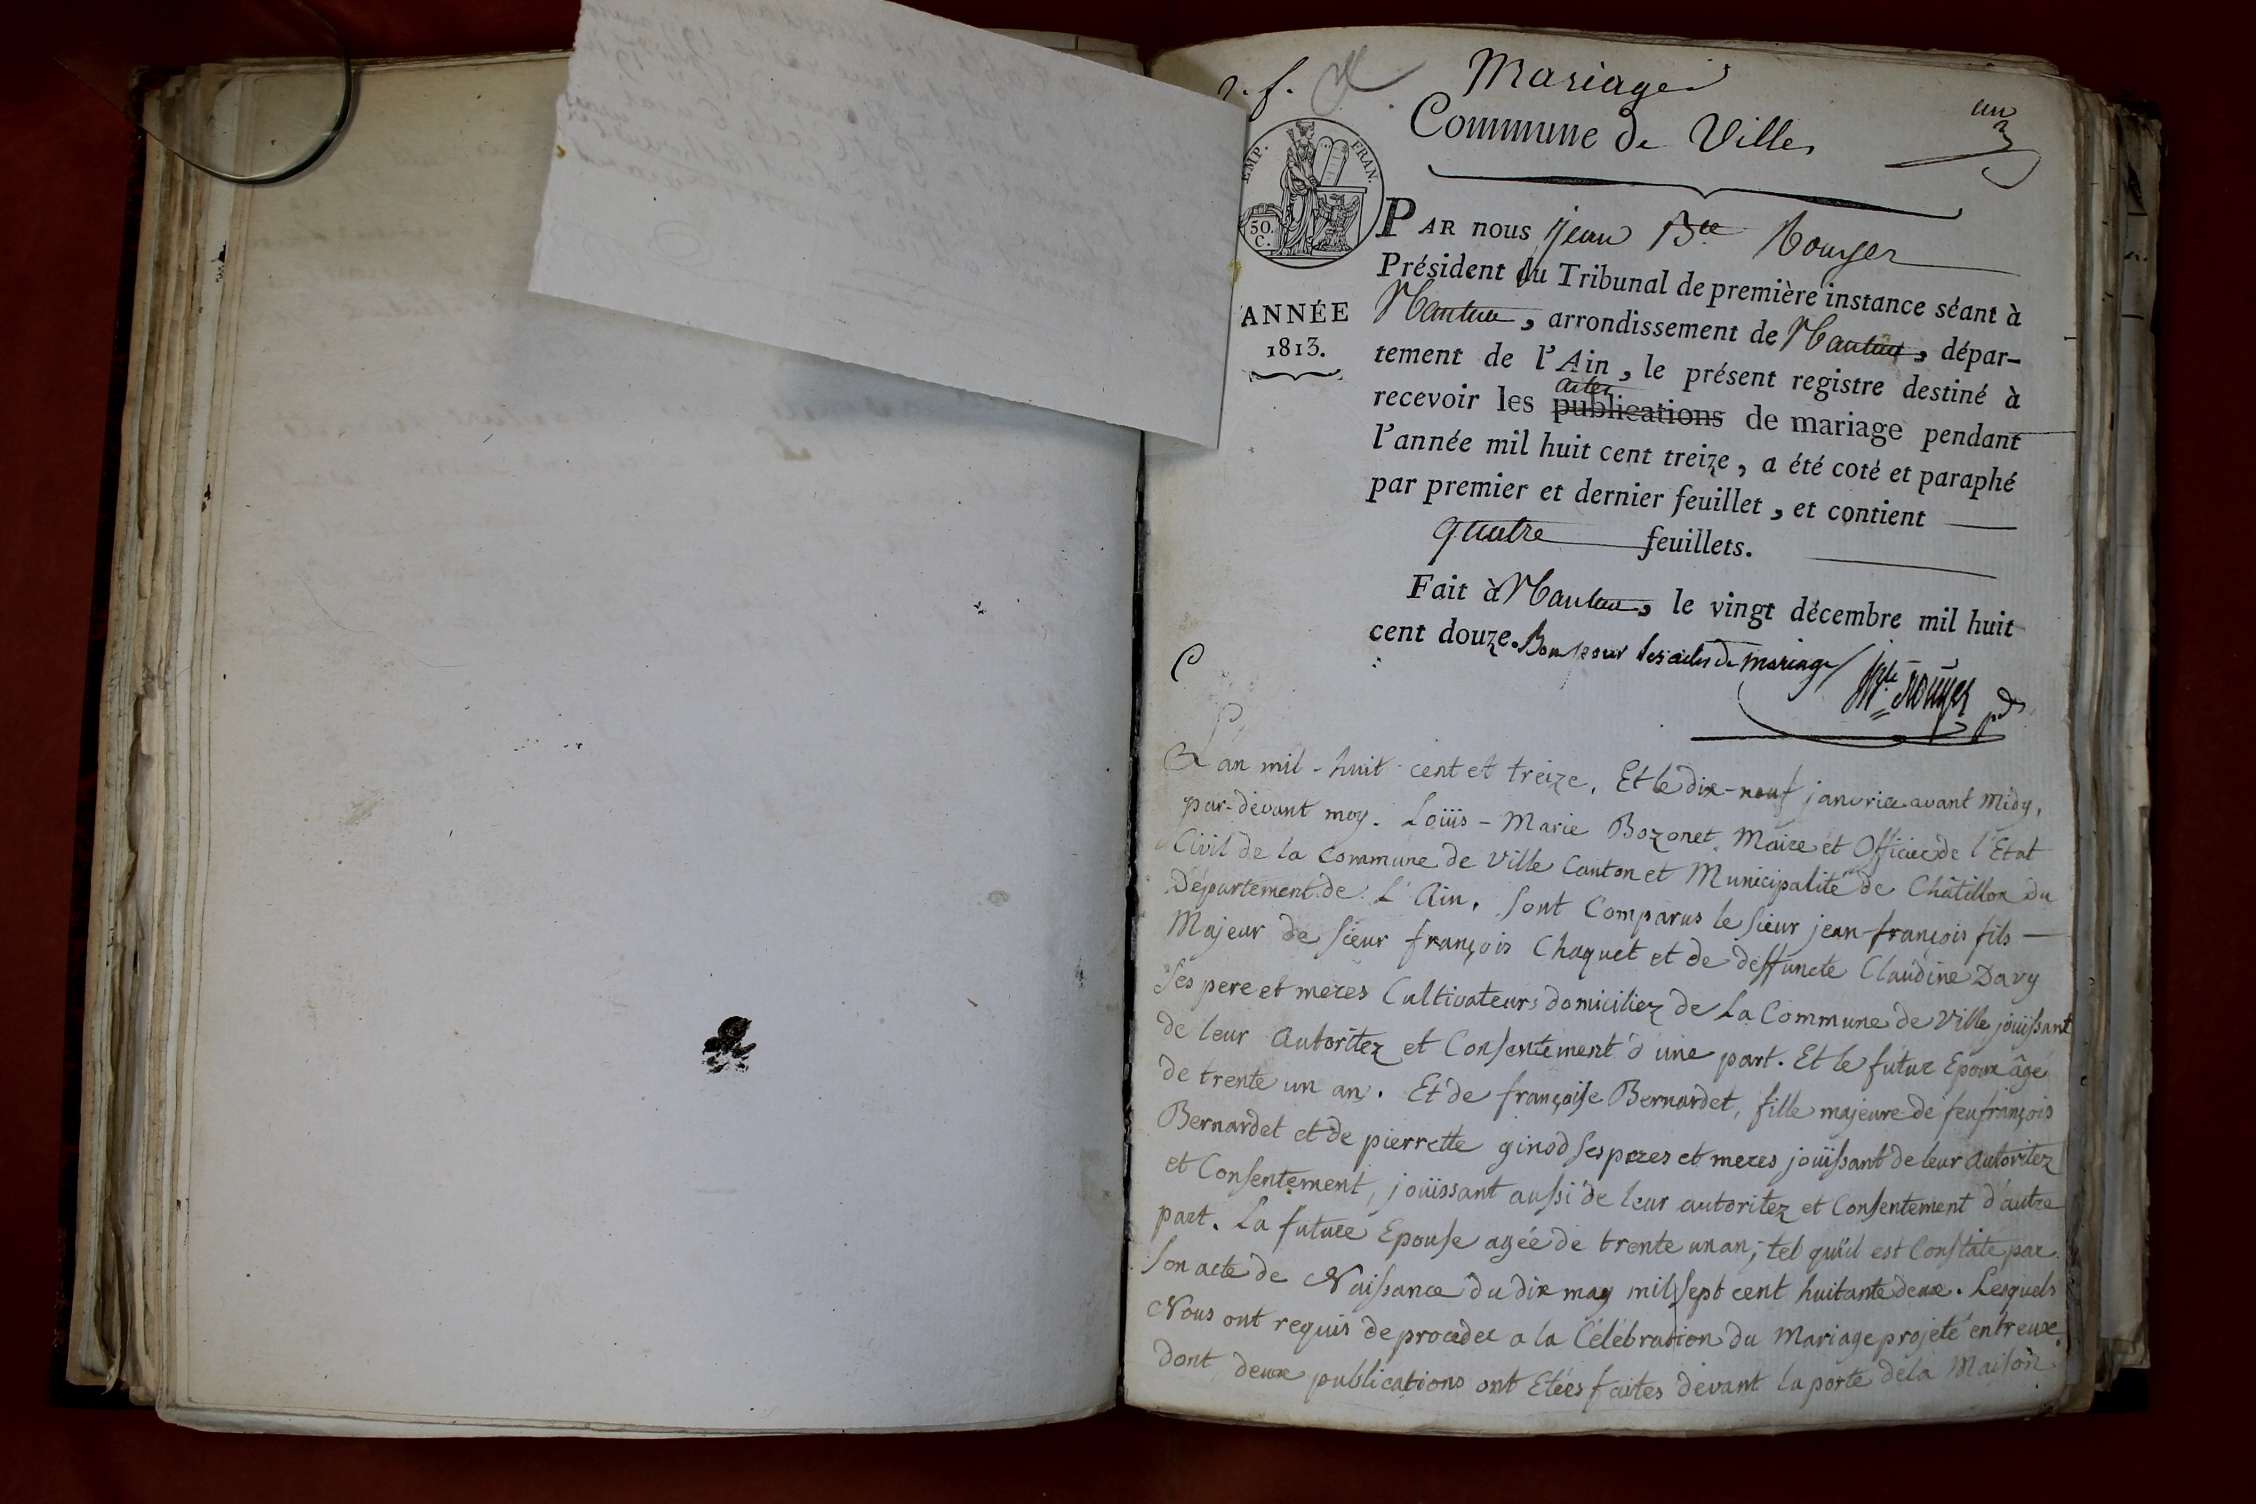 Mariages
Commune de Ville
un
EMP. FRAN.
50.
C.
ANNÉE
1813.
PAR nous jean Bte Rouyer
Président du Tribunal de première instance séant à
Nantua, arrondissement de Nantua, dépar-
tement de l'Ain, le présent registre destiné à
actes
recevoir les publications de mariage pendant
l'année mil huit cent treize, a été coté et paraphé
par premier et dernier feuillet, et contient
quatre feuillets.
Fait à Nantua, le vingt décembre mil huit
cent douze. Bon pour les actes de mariage
Bte Rouyer pdt
L'an mil-huit cent et treize, Et le dix-neuf janvrier avant Midy,
par-devant moy. Loüis-Marie Bozonet, Maire et Officier de l'Etat
Civil de la Commune de Ville Canton et Municipalité de Châtillon du
Département de L'Ain, sont Comparus le sieur jean-françois fils
Majeur de sieur françois Chaquet et de deffuncte Claudine Davy
ses pere et meres Cultivateurs domiciliez de La Commune de Ville joüissant
de leur Autoritez et Consentement d'une part. Et le futur Epoux âgé
de trente un an. Et de françoise Bernardet, fille majeure de feu françois
Bernardet et de pierrette ginod ses peres et meres joüissant de leur autoritez
et Consentement, joüissant aussi de leur autoritez et Consentement d'autre
part. La future Epouse agée de trente un an; tel qu'il est Constaté par
son acte de Naissance du dix may mil sept cent huitante deux. Lesquels
Nous ont requis de proceder a la Célébration du Mariage projeté entreux
dont deux publications ont Etées faites devant la porte de la Maison